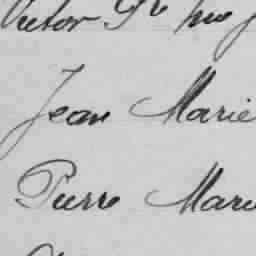 Victor
Jean Marie
Pierre Marie